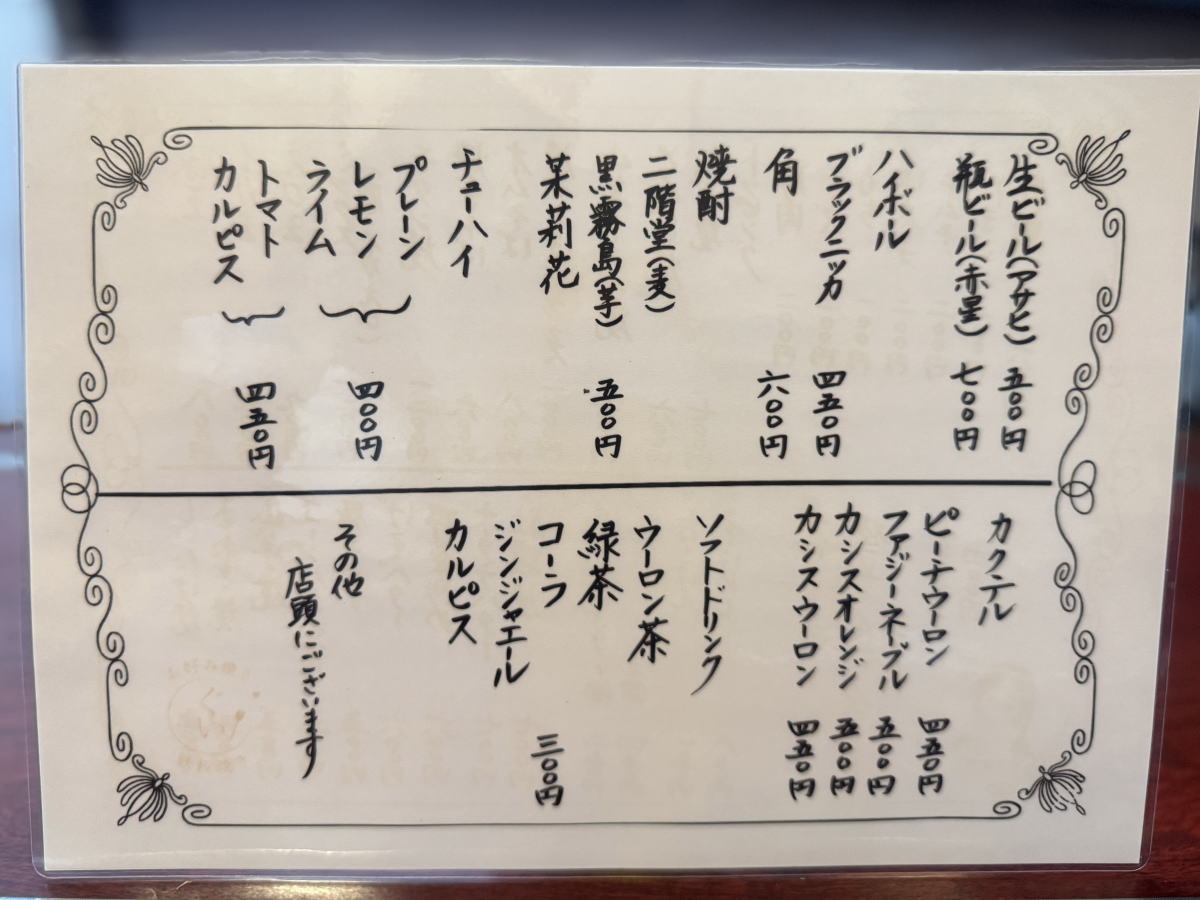 生ビール(アサヒ) 五〇〇円
瓶ビール(赤星) 七〇〇円
ハイボール
ブラックニッカ 四五〇円
角 六〇〇円
焼酎
二階堂(麦)
黒霧島(芋) 五〇〇円
茉莉花
チューハイ
プレーン
レモン 四〇〇円
ライム
トマト 四五〇円
カルピス
カクテル
ピーチウーロン 四五〇円
ファジーネーブル 五〇〇円
カシスオレンジ 五〇〇円
カシスウーロン 四五〇円
ソフトドリンク
ウーロン茶
緑茶
コーラ 三〇〇円
ジンジャエール
カルピス
その他
店頭にございます